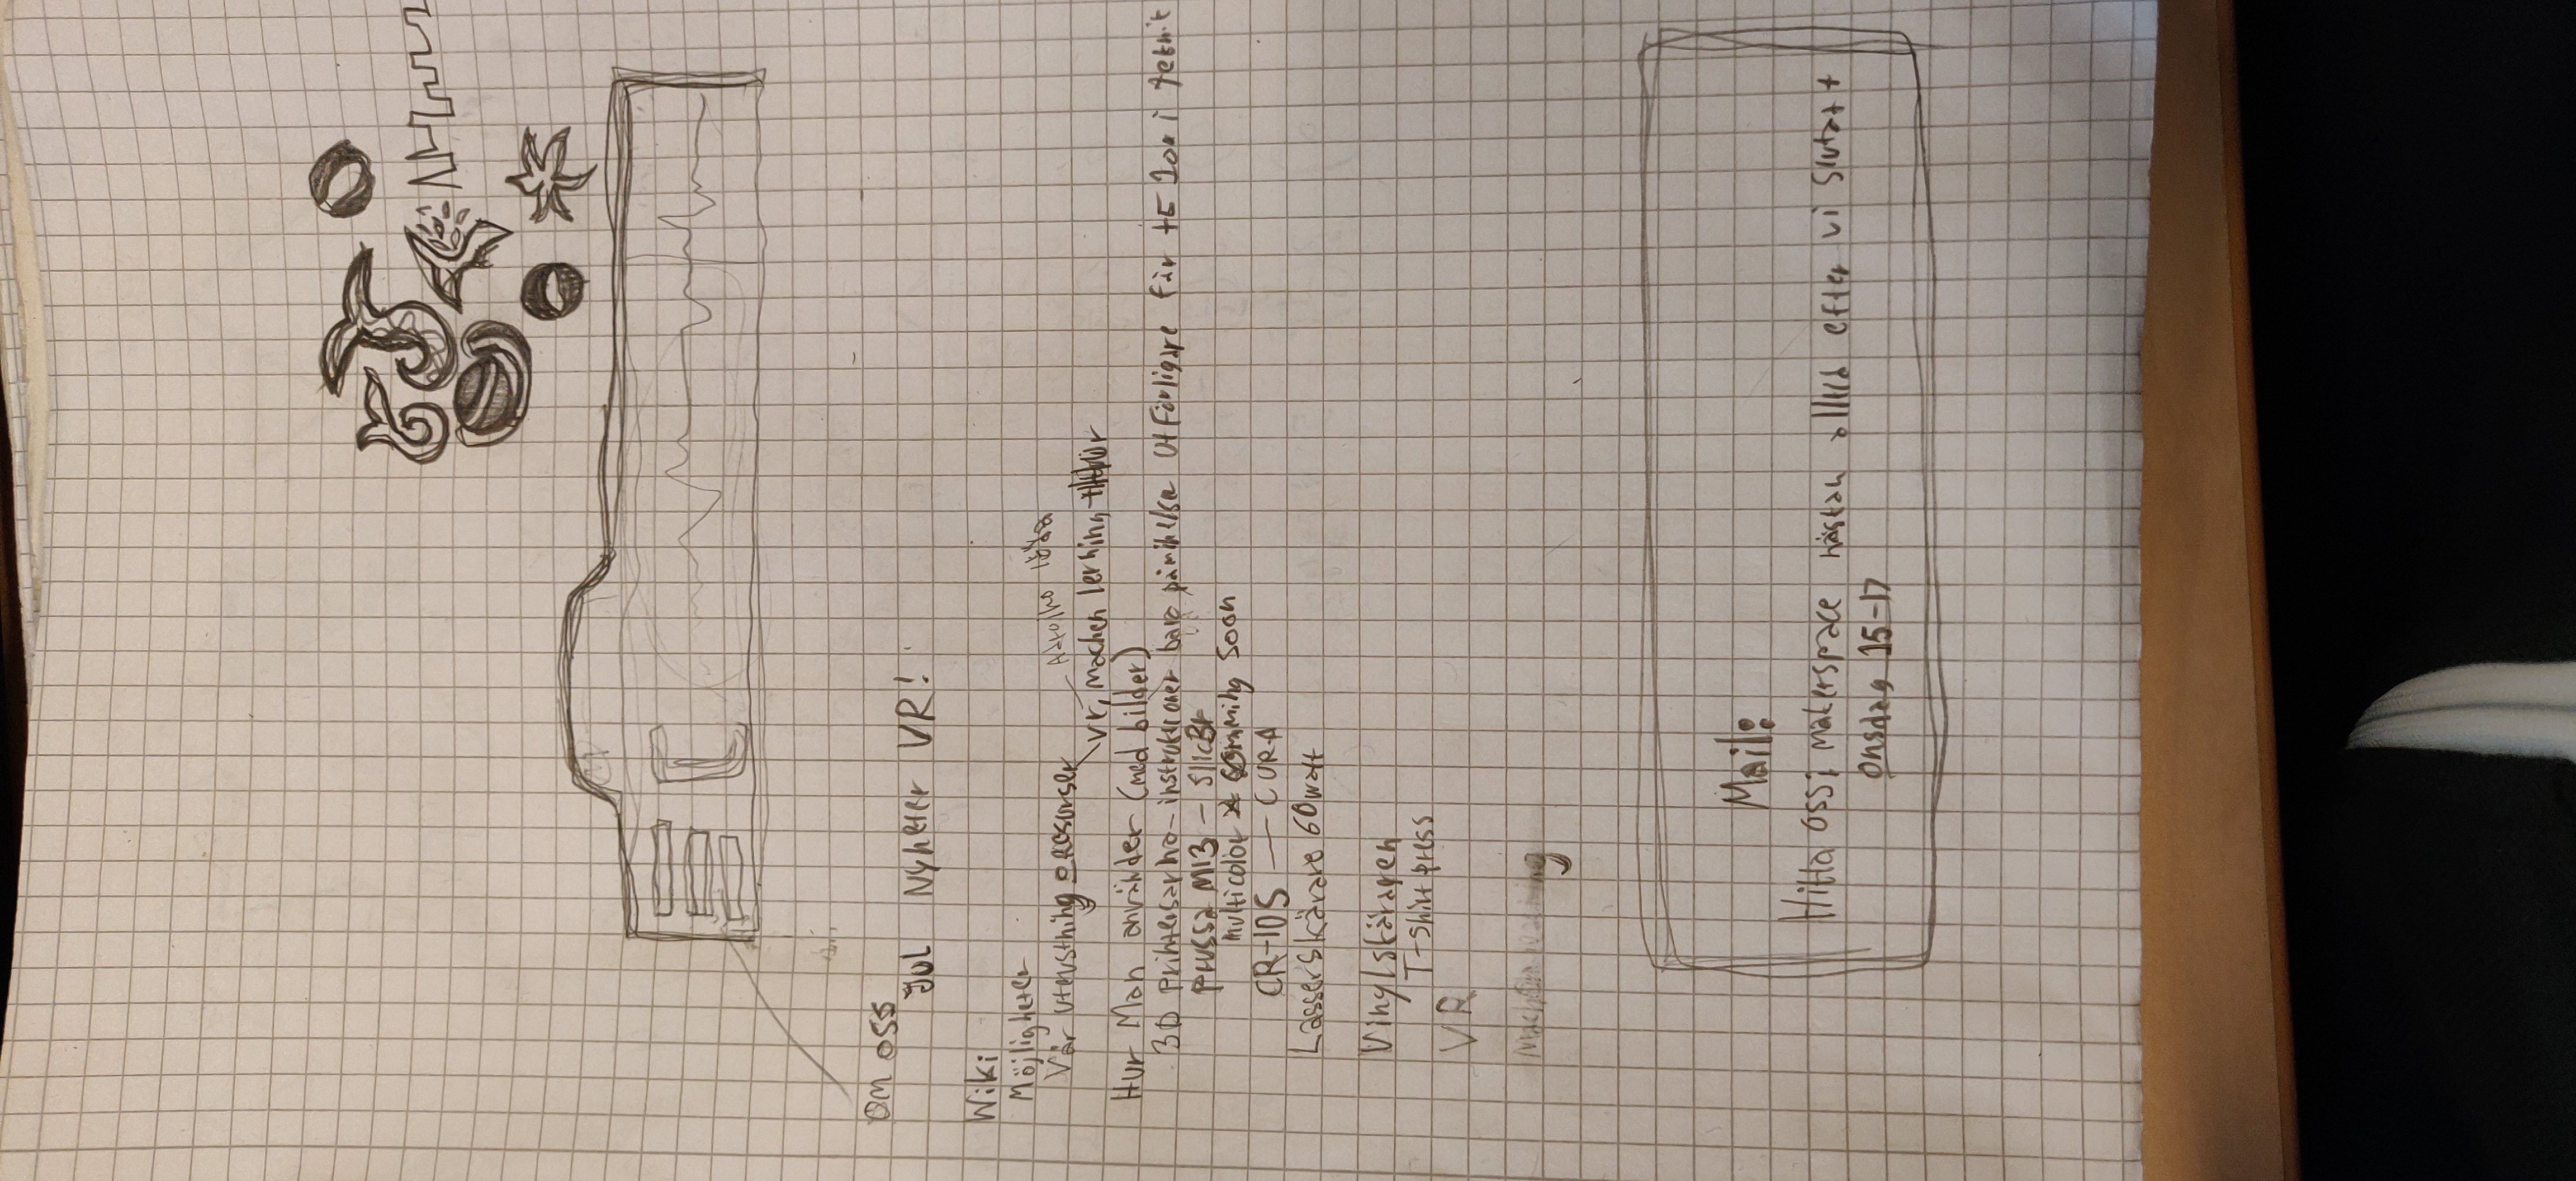 Om oss
Jul Nyheter VR!
Wiki
Möjligheter
Vår uterustning o resurser
vr, machen lerning
Hur Man använder (med bilder)
3D printersarna - instruktioner bara påminhelse Utförligare för tE 10a i teknik
prussa MI3 - Slic3r
Multicolor comming soon
CR-10S — CURA
Lasserskärare 60watt
Vinylskäraren
T-shirt press
VR
Mail:
Hitta oss i makerspace nästan alltid efter vi slutat +
onsdag 15-17